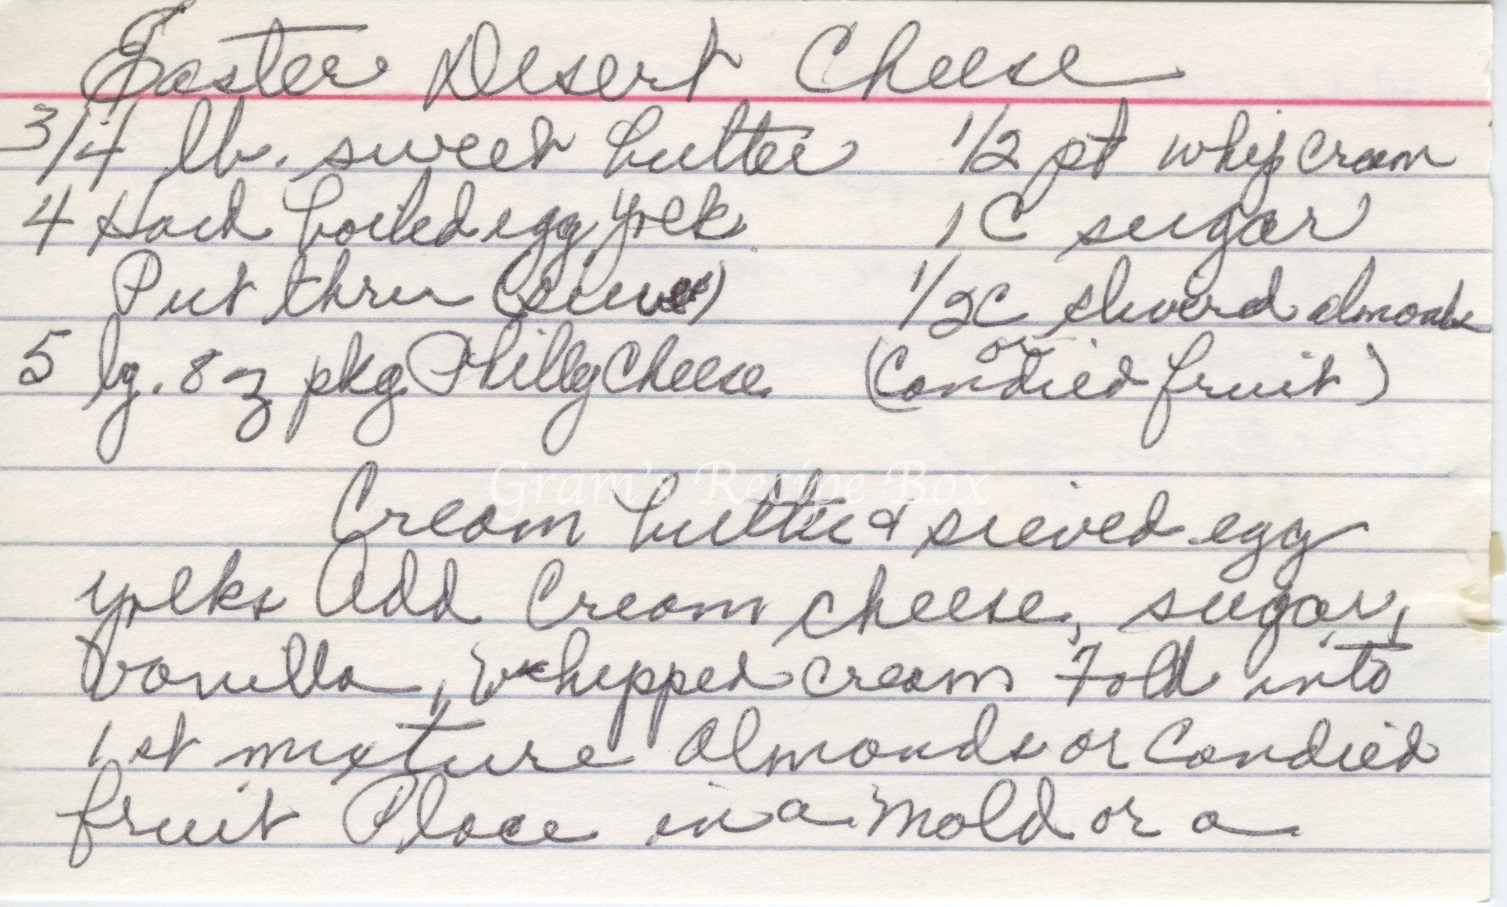 Easter Desert Cheese
3/4 lb. sweet butter 1/2 pt whip cream
4 Hard boiled egg yolk 1 C sugar
Put thru (sieve) 1/2C sliverd almonds
or
5 lg. 8 oz pkg Philly Cheese (Candied fruit)
Gram's Recipe Box
Cream butter & sieved egg
yolks Add Cream cheese, sugar,
Vanilla, Whipped cream Fold into
1st mixture Almonds or Candied
fruit Place in a Mold or a